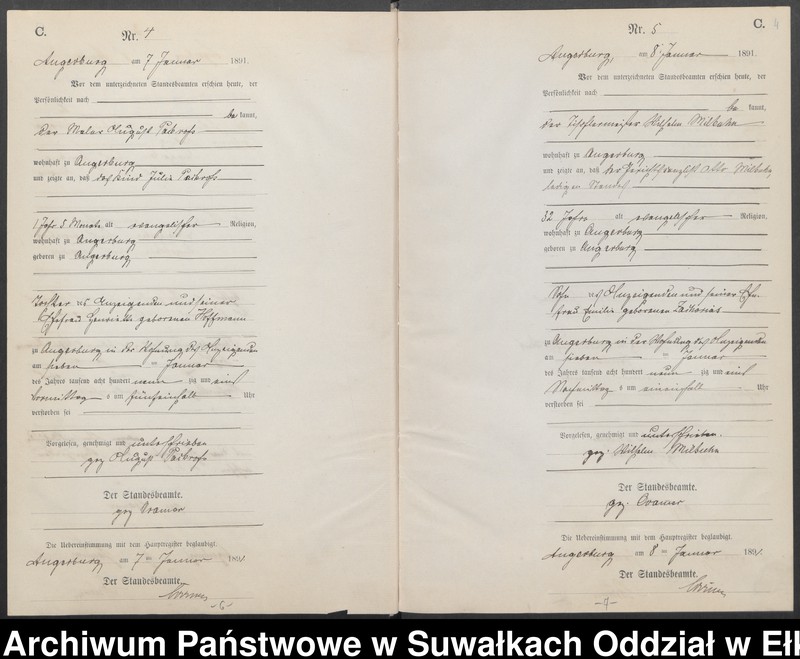 C.
Nr. 4
Angerburg am 7 Januar 1891.
Vor dem unterzeichneten Standesbeamten erschien heute, der
Persönlichkeit nach
be kannt,
der Maler August
wohnhaft zu Angerburg
und zeigte an, daß das Kind Julie
1 Jahr 5 Monate alt evangelischer Religion,
wohnhaft zu Angerburg
geboren zu Angerburg
Tochter des Anzeigenden und seiner
Ehefrau Henriette geborenen Hoffmann
zu Angerburg in der Wohnung des Anzeigenden
am sieben ten Januar
des Jahres tausend acht hundert neun zig und eins
Vormittags um fünfeinhalb Uhr
verstorben sei
Vorgelesen, genehmigt und unterschrieben
gez August
Der Standesbeamte.
gez Cramer
Die Uebereinstimmung mit dem Hauptregister beglaubigt.
Angerburg am 7 ten Januar 1891
Der Standesbeamte.
-6-
C. 4
Nr. 5
Angerburg, am 8 Januar 1891.
Vor dem unterzeichneten Standesbeamten erschien heute, der
Persönlichkeit nach
be kannt,
der Tischlermeister Wilhelm Milbuhn
wohnhaft zu Angerburg
und zeigte an, daß der Otto Milbuhn
ledigen Standes
32 Jahre alt evangelischer Religion,
wohnhaft zu Angerburg
geboren zu Angerburg
Sohn des Anzeigenden und seiner Ehe-
frau Emilie geborenen Zacharias
zu Angerburg in der Wohnung des Anzeigenden
am sieben ten Januar
des Jahres tausend acht hundert neun zig und eins
Nachmittags um eineinhalb Uhr
verstorben sei
Vorgelesen, genehmigt und unterschrieben.
gez. Wilhelm Milbuhn
Der Standesbeamte.
gez. Cramer
Die Uebereinstimmung mit dem Hauptregister beglaubigt.
Angerburg am 8 ten Januar 1891
Der Standesbeamte.
-7-
Archiwum Państwowe w Suwałkach Oddział w Eł